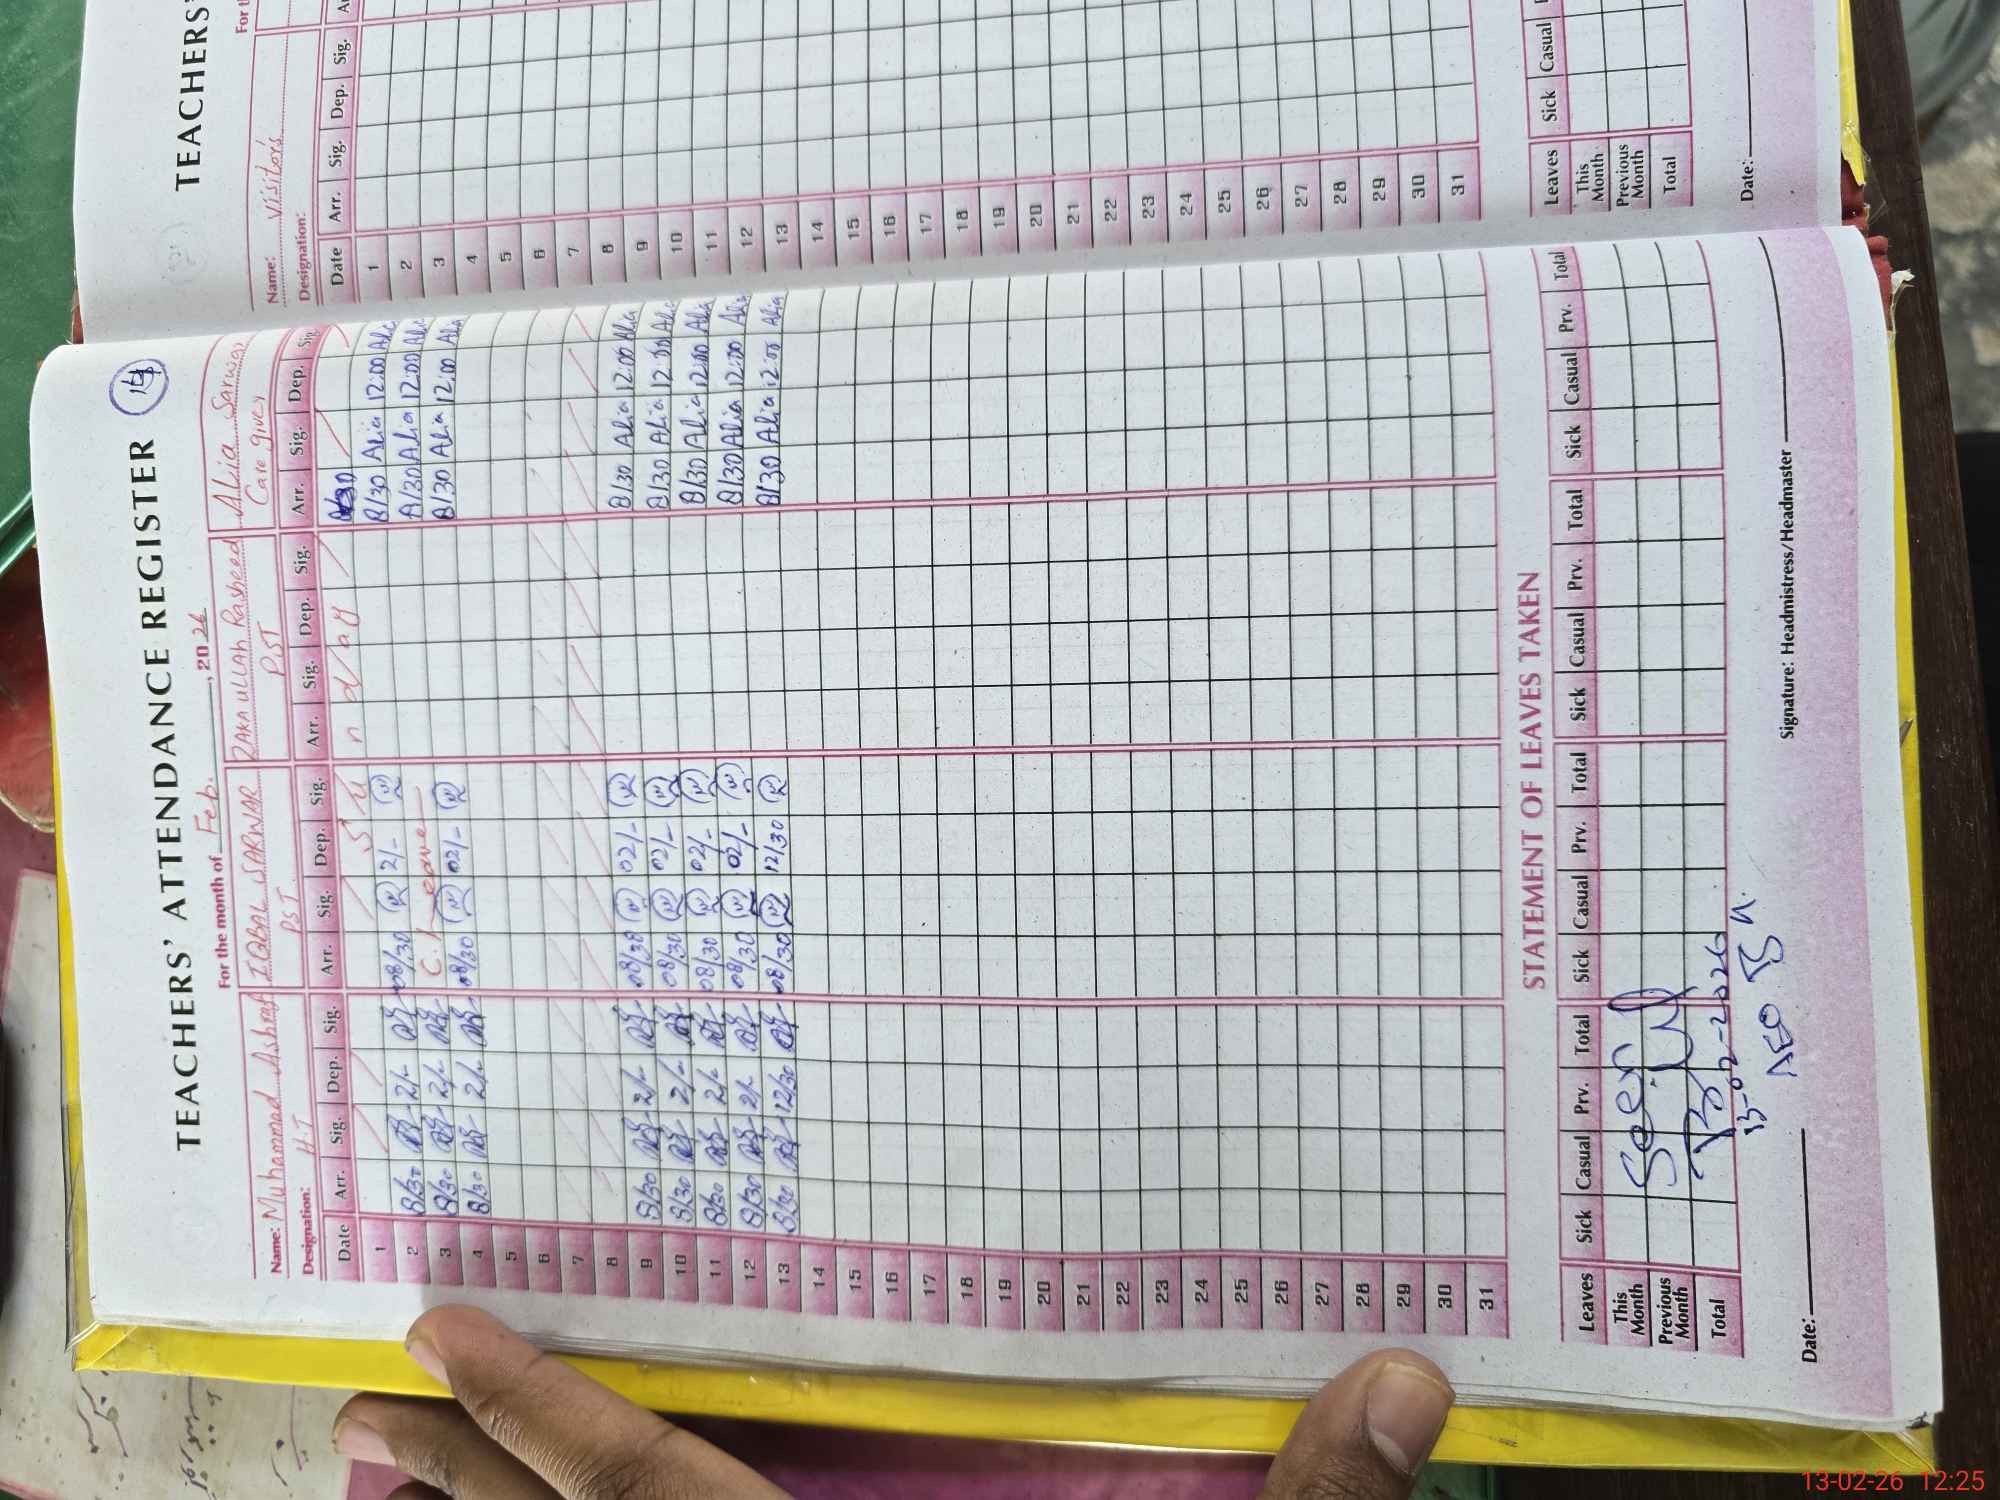 14
TEACHERS' ATTENDANCE REGISTER
For the month of Feb. , 2026
Name: Muhammad Ashraf IQBAL SARWAR ZAKAULLAH Rasheed Alia Sarwar
Designation: H.T PST PST Care giver
Date Arr. Sig. Dep. Sig. Arr. Sig. Dep. Sig. Arr. Sig. Dep. Sig. Arr. Sig. Dep. Sig.
1 S u n d a y
2 8/30 2/- 08/30 2/- 8/30 Alia 12:00 Alia
3 8/30 2/- C. Leave 8/30 Alia 12:00 Alia
4 8/30 2/- 08/30 02/- 8/30 Alia 12:00 Alia
5
6
7
8
9 8/30 2/- 08/30 02/- 8/30 Alia 12:00 Alia
10 8/30 2/- 08/30 02/- 8/30 Alia 12:00 Alia
11 8/30 2/- 08/30 02/- 8/30 Alia 12:00 Alia
12 8/30 2/- 08/30 02/- 8/30 Alia 12:00 Alia
13 8/30 12/30 08/30 12/30 8/30 Alia 12:00 Alia
14
15
16
17
18
19
20
21
22
23
24
25
26
27
28
29
30
31
STATEMENT OF LEAVES TAKEN
Leaves Sick Casual Prv. Total Sick Casual Prv. Total Sick Casual Prv. Total Sick Casual Prv. Total
This Month
Previous Month
Total
Seen
13-02-2026
AEO
Date: Signature: Headmistress/Headmaster
TEACHERS'
Name: Visitor's
Designation:
Date Arr. Sig. Dep. Sig.
1
2
3
4
5
6
7
8
9
10
11
12
13
14
15
16
17
18
19
20
21
22
23
24
25
26
27
28
29
30
31
Leaves Sick Casual
This Month
Previous Month
Total
Date:
13-02-26 12:25